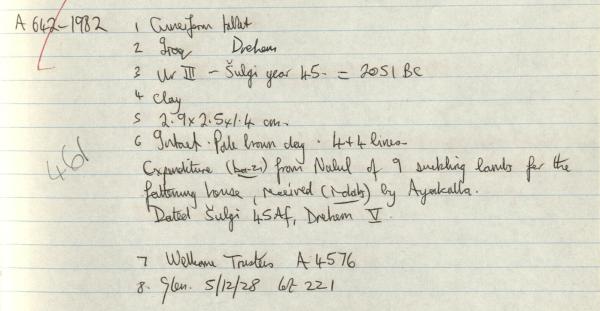 A 642-1982 1 Cuneiform tablet
2 Iraq Drehem
3 Ur III - Šulgi year 45. = 2051 BC
4 Clay
5 2.9 x 2.5 x 1.4 cm.
6 Intact. Pale brown clay. 4+4 lines
461
Expenditure (ba-zi) from Nalul of 9 suckling lambs for the
fattening house, received (ì-dab5) by Ayakalla.
Dated Šulgi 45Af, Drehem V.
7 Wellcome Trustees A.4576
8. Glen. 5/12/28 lot 221